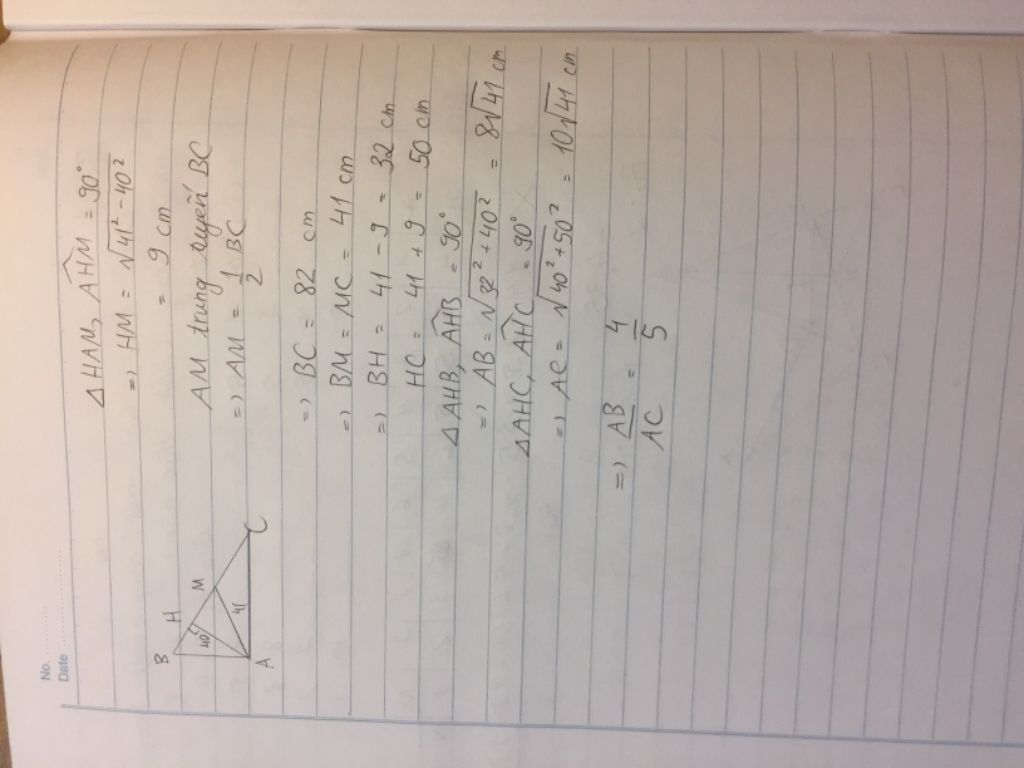 No. ........
Date ..................
B
H
40
M
41
A
C
∆HAM, \widehat{AHM} = 90°
=> HM = √(41² - 40²)
= 9 cm
AM trung tuyến BC
=> AM = 1/2 BC
=> BC = 82 cm
=> BM = MC = 41 cm
=> BH = 41 - 9 = 32 cm
HC = 41 + 9 = 50 cm
∆AHB, \widehat{AHB} = 90°
=> AB = √(32² + 40²) = 8√41 cm
∆AHC, \widehat{AHC} = 90°
=> AC = √(40² + 50²) = 10√41 cm
=> AB/AC = 4/5